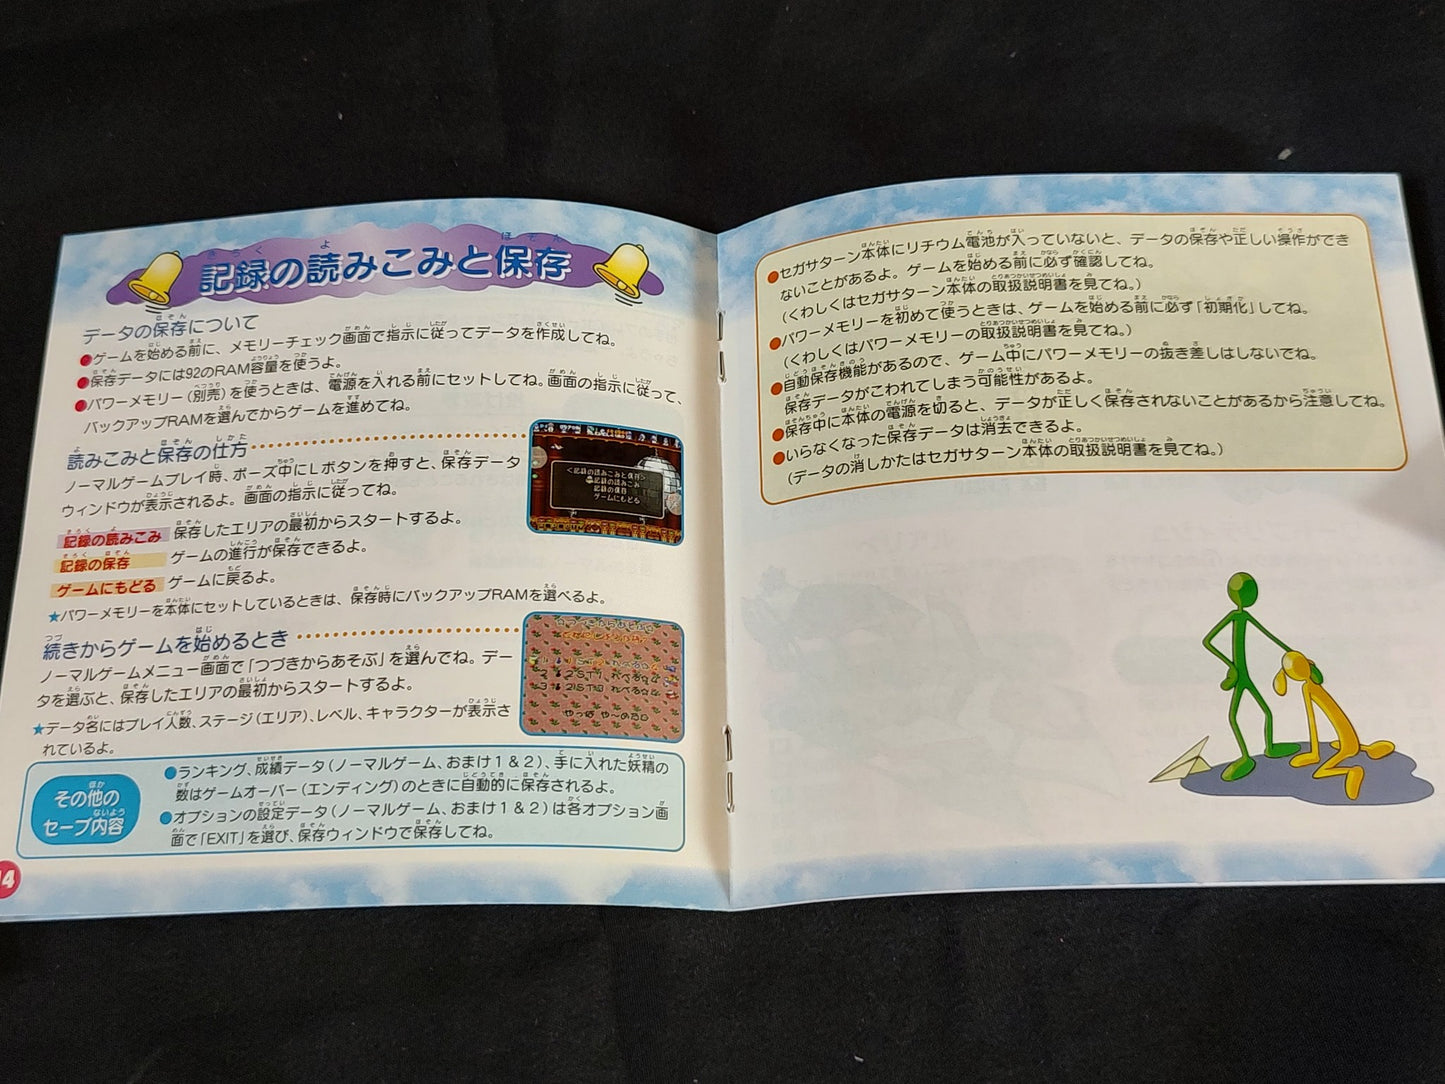 記録の読みこみと保存
データの保存について
●ゲームを始める前に、メモリーチェック画面で指示に従ってデータを作成してね。
●保存データには92のRAM容量を使うよ。
●パワーメモリー（別売）を使うときは、電源を入れる前にセットしてね。画面の指示に従って、
バックアップRAMを選んでからゲームを進めてね。
読みこみと保存の仕方
ノーマルゲームプレイ時、ポーズ中にLボタンを押すと、保存データ
ウィンドウが表示されるよ。画面の指示に従ってね。
記録の読みこみ 保存したエリアの最初からスタートするよ。
記録の保存 ゲームの進行が保存できるよ。
ゲームにもどる ゲームに戻るよ。
★パワーメモリーを本体にセットしているときは、保存時にバックアップRAMを選べるよ。
<記録の読みこみと保存>
記録の読みこみ
記録の保存
ゲームにもどる
続きからゲームを始めるとき
ノーマルゲームメニュー画面で「つづきからあそぶ」を選んでね。デー
タを選ぶと、保存したエリアの最初からスタートするよ。
★データ名にはプレイ人数、ステージ（エリア）、レベル、キャラクターが表示さ
れているよ。
その他の
セーブ内容
●ランキング、成績データ（ノーマルゲーム、おまけ1＆2）、手に入れた妖精の
数はゲームオーバー（エンディング）のときに自動的に保存されるよ。
●オプションの設定データ（ノーマルゲーム、おまけ1＆2）は各オプション画
面で「EXIT」を選び、保存ウィンドウで保存してね。
14
●セガサターン本体にリチウム電池が入っていないと、データの保存や正しい操作ができ
ないことがあるよ。ゲームを始める前に必ず確認してね。
（くわしくはセガサターン本体の取扱説明書を見てね。）
●パワーメモリーを初めて使うときは、ゲームを始める前に必ず「初期化」してね。
（くわしくはパワーメモリーの取扱説明書を見てね。）
●自動保存機能があるので、ゲーム中にパワーメモリーの抜き差しはしないでね。
保存データがこわれてしまう可能性があるよ。
●保存中に本体の電源を切ると、データが正しく保存されないことがあるから注意してね。
●いらなくなった保存データは消去できるよ。
（データの消しかたはセガサターン本体の取扱説明書を見てね。）